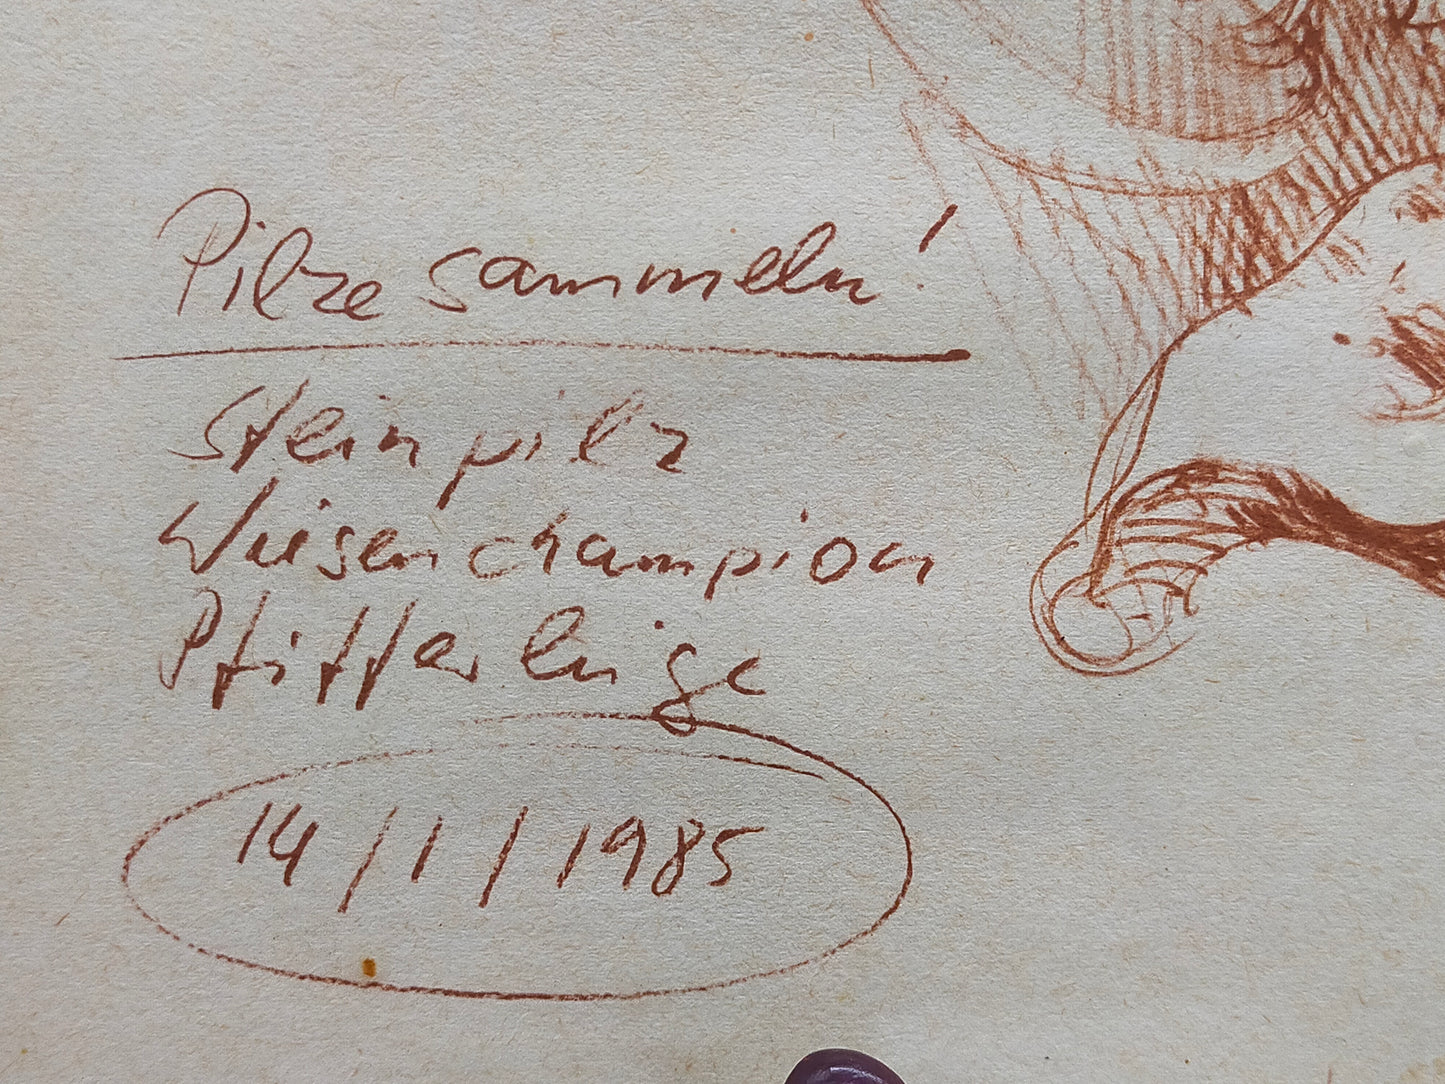 Pilze sammeln!
Steinpilz
Wiesenchampion
Pfifferlinge
14/1/1985